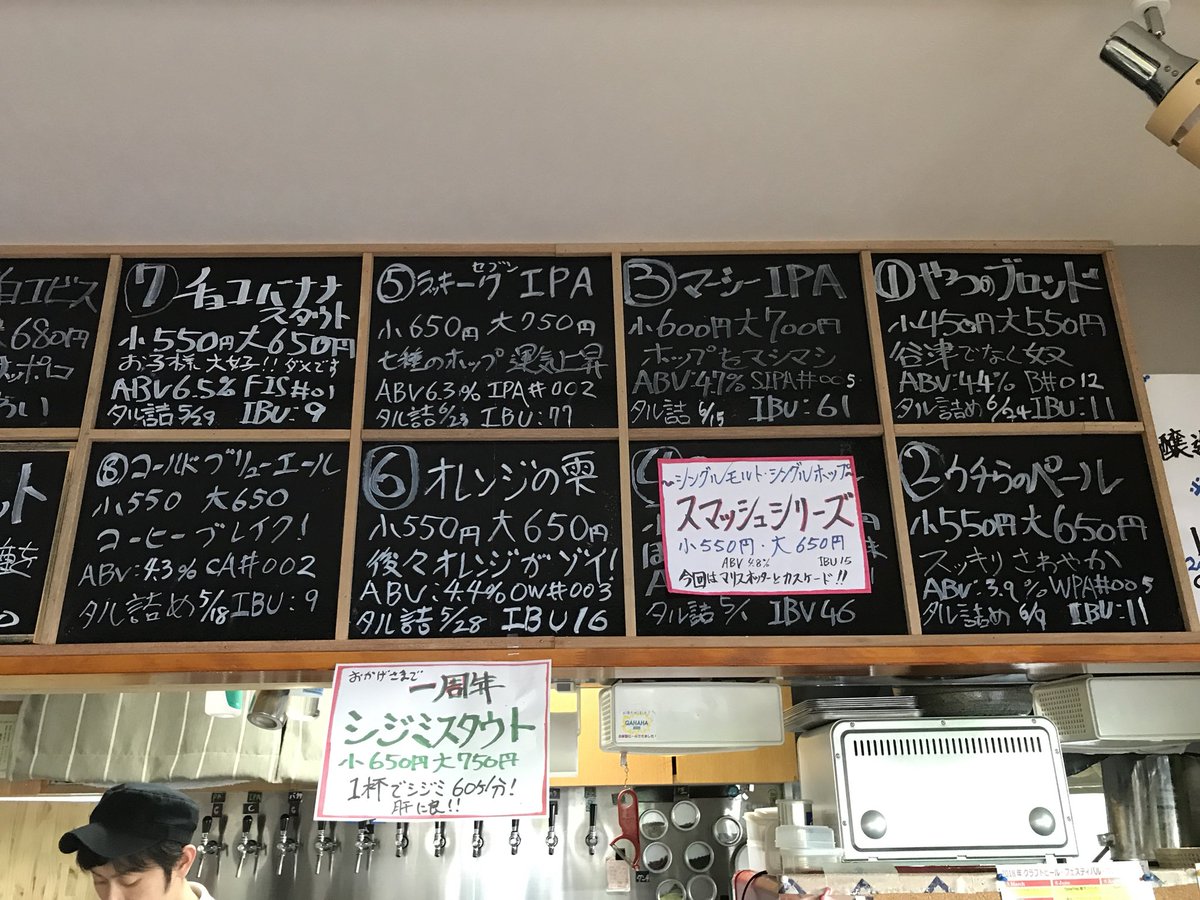 白エビス
680円
⑦チョコバナナ
スタウト
小550円 大650円
お子様 大好!! ダメです
ABV6.5% FIS#01
タル詰5/29 IBU:9
⑤ラッキー7 セブン IPA
小650円 大750円
七種のホップ 運気上昇
ABV6.3% IPA#002
タル詰6/23 IBU:77
③マーシーIPA
小600円大700円
ホップをマシマシ
ABV:4.7% SIPA#005
タル詰 6/15 IBU:61
①やつのブロンド
小450円大550円
谷津でなく奴
ABV:4.4% B#012
タル詰め6/24 IBU:11
⑧コールドブリューエール
小550 大650
コーヒーブレイク!
ABV:4.3% CA#002
タル詰め5/18 IBU:9
⑥オレンジの雫
小550円大650円
後々オレンジがゾイ!
ABV:4.4% OW#003
タル詰5/28 IBU16
シングルモルト・シングルホップ
スマッシュシリーズ
小550円・大650円
ABV 4.8% IBU15
今回はマリスオッターとカスケード!!
タル詰5/1 IBU46
②ウチらのペール
小550円大650円
スッキリさわやか
ABV:3.9% WPA#005
タル詰め6/9 IBU:11
おかげさまで
一周年
シジミスタウト
小650円大750円
1杯でシジミ60コ分!
肝に良!!
GAHAHA
クラフトビール・フェスティバル